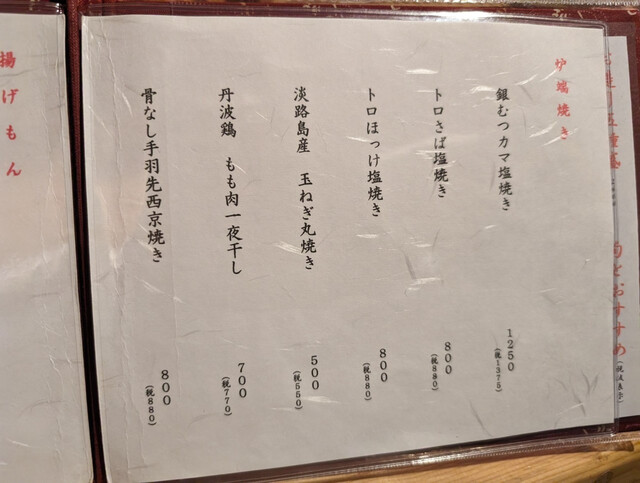 炉端焼き
銀むつカマ塩焼き
1250
(税1375)
トロさば塩焼き
800
(税880)
トロほっけ塩焼き
800
(税880)
淡路島産 玉ねぎ丸焼き
500
(税550)
丹波鶏 もも肉一夜干し
700
(税770)
骨なし手羽先西京焼き
800
(税880)
揚げもん